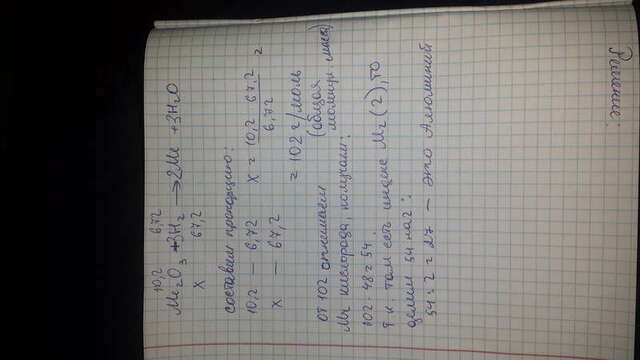 10,2 6,72
Me₂O₃ + 3H₂ → 2Me + 3H₂O
x 67,2
составим пропорцию:
10,2 — 6,72 x = 10,2 · 67,2 / 6,72 =
x — 67,2
= 102 г/моль
от 102 отнимаем (общая молекул. масса)
Mr кислорода, получаем:
102 - 48 = 54.
т.к. там есть индекс M₂(2), то
делим 54 на 2:
54 : 2 = 27 — это Алюминий
Решение: